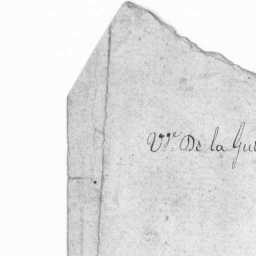 Vve De la Gue